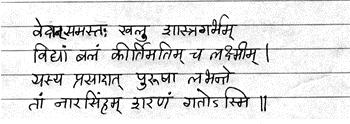 खलु शास्त्रगर्भम्
विद्यां बलं कीर्तिमतिम् च लक्ष्मीम् ।
यस्य प्रसादात् पुरूषा लभन्ते
तां नारसिंहम् शरणं गतोऽस्मि ॥